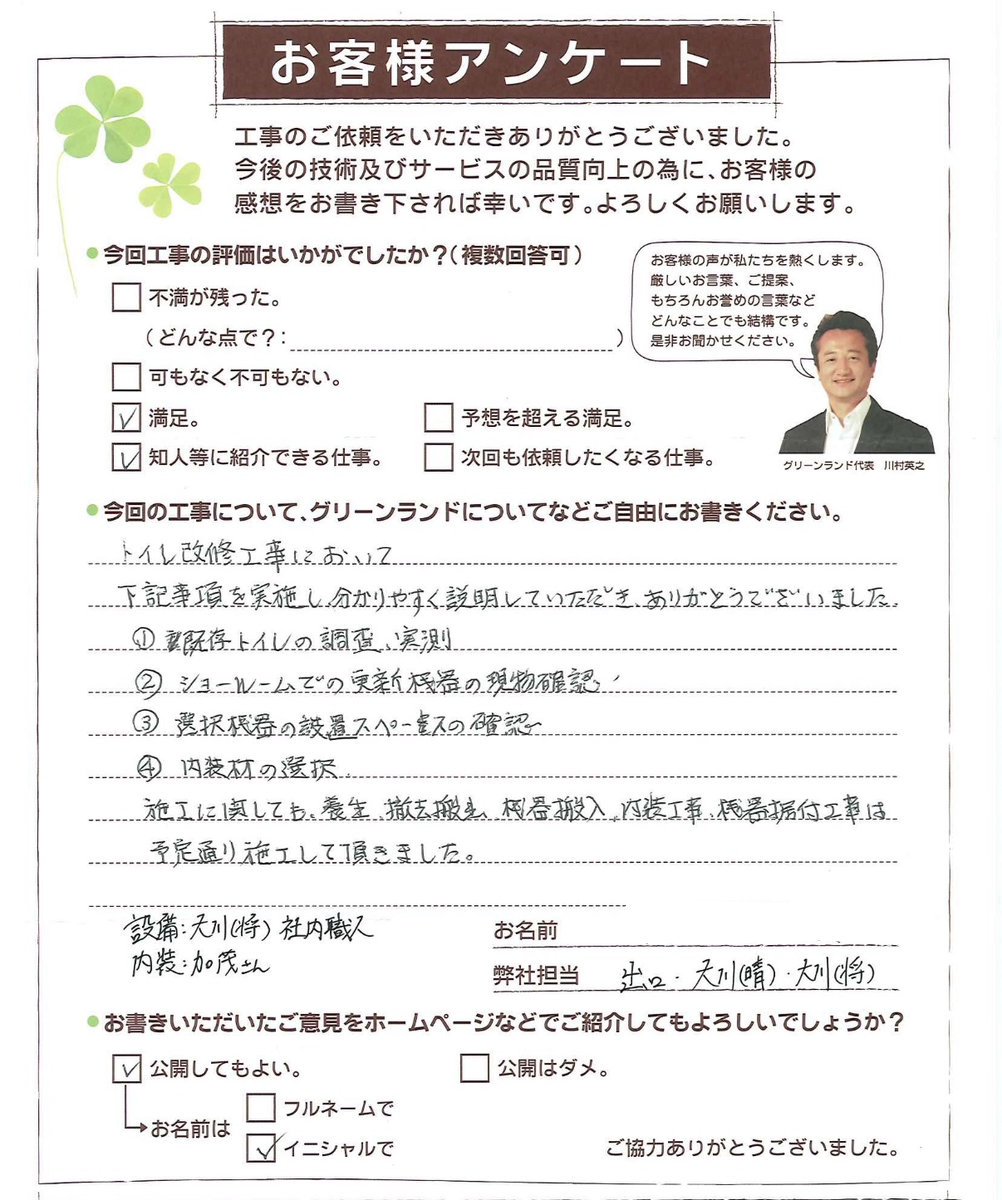 お客様アンケート
工事のご依頼をいただきありがとうございました。
今後の技術及びサービスの品質向上の為に、お客様の
感想をお書き下されば幸いです。よろしくお願いします。
今回工事の評価はいかがでしたか？（複数回答可）
不満が残った。
（どんな点で？：　）
可もなく不可もない。
満足。　予想を超える満足。
知人等に紹介できる仕事。　次回も依頼したくなる仕事。
お客様の声が私たちを熱くします。
厳しいお言葉、ご提案、
もちろんお誉めの言葉など
どんなことでも結構です。
是非お聞かせください。
グリーンランド代表　川村英之
今回の工事について、グリーンランドについてなどご自由にお書きください。
トイレ改修工事において
下記事項を実施し、分かりやすく説明していただき、ありがとうございました。
① 既存トイレの調査、実測
② ショールームでの更新機器の現物確認
③ 選択機器の設置スペースの確認
④ 内装材の選択
施工に関しても、養生、撤去搬出、機器搬入、内装工事、機器据付工事は
予定通り施工して頂きました。
設備：大川（将）社内職人
内装：加茂さん
お名前
弊社担当　出口・大川（晴）・大川（将）
お書きいただいたご意見をホームページなどでご紹介してもよろしいでしょうか？
公開してもよい。　公開はダメ。
お名前は
フルネームで
イニシャルで
ご協力ありがとうございました。